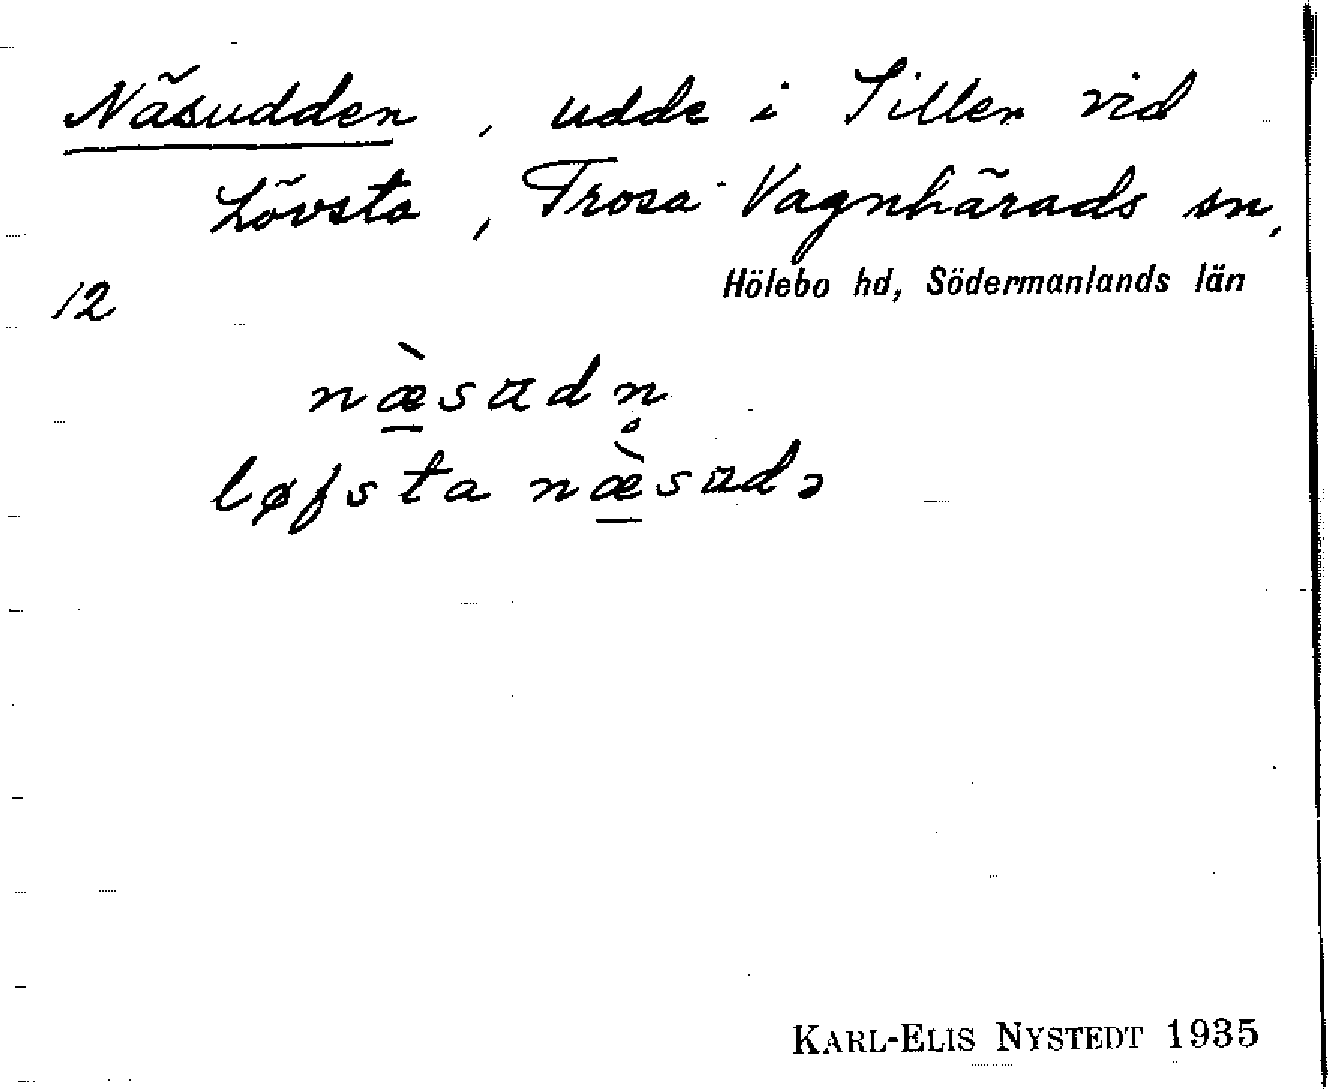 Näsudden, udde i Sillen vid
Lövsta, Trosa-Vagnhärads sn,
Hölebo hd, Södermanlands län
12
næ̱̀sɑdn̥
løfsta næ̱̀sɑdə
KARL-ELIS NYSTEDT 1935